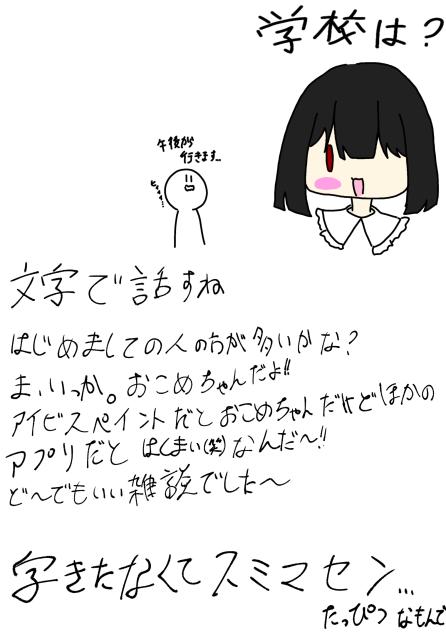 学校は?
午後から
行きます…
ヒィィ…
文字で話すね
はじめましての人の方が多いかな?
ま、いっか。おこめちゃんだよ!!
アイビスペイントだとおこめちゃんだけどほかの
アプリだと はくまい(笑)なんだ〜!!
ど〜でもいい雑談でした〜
字きたなくてスミマセン…
たっぴつなもんで